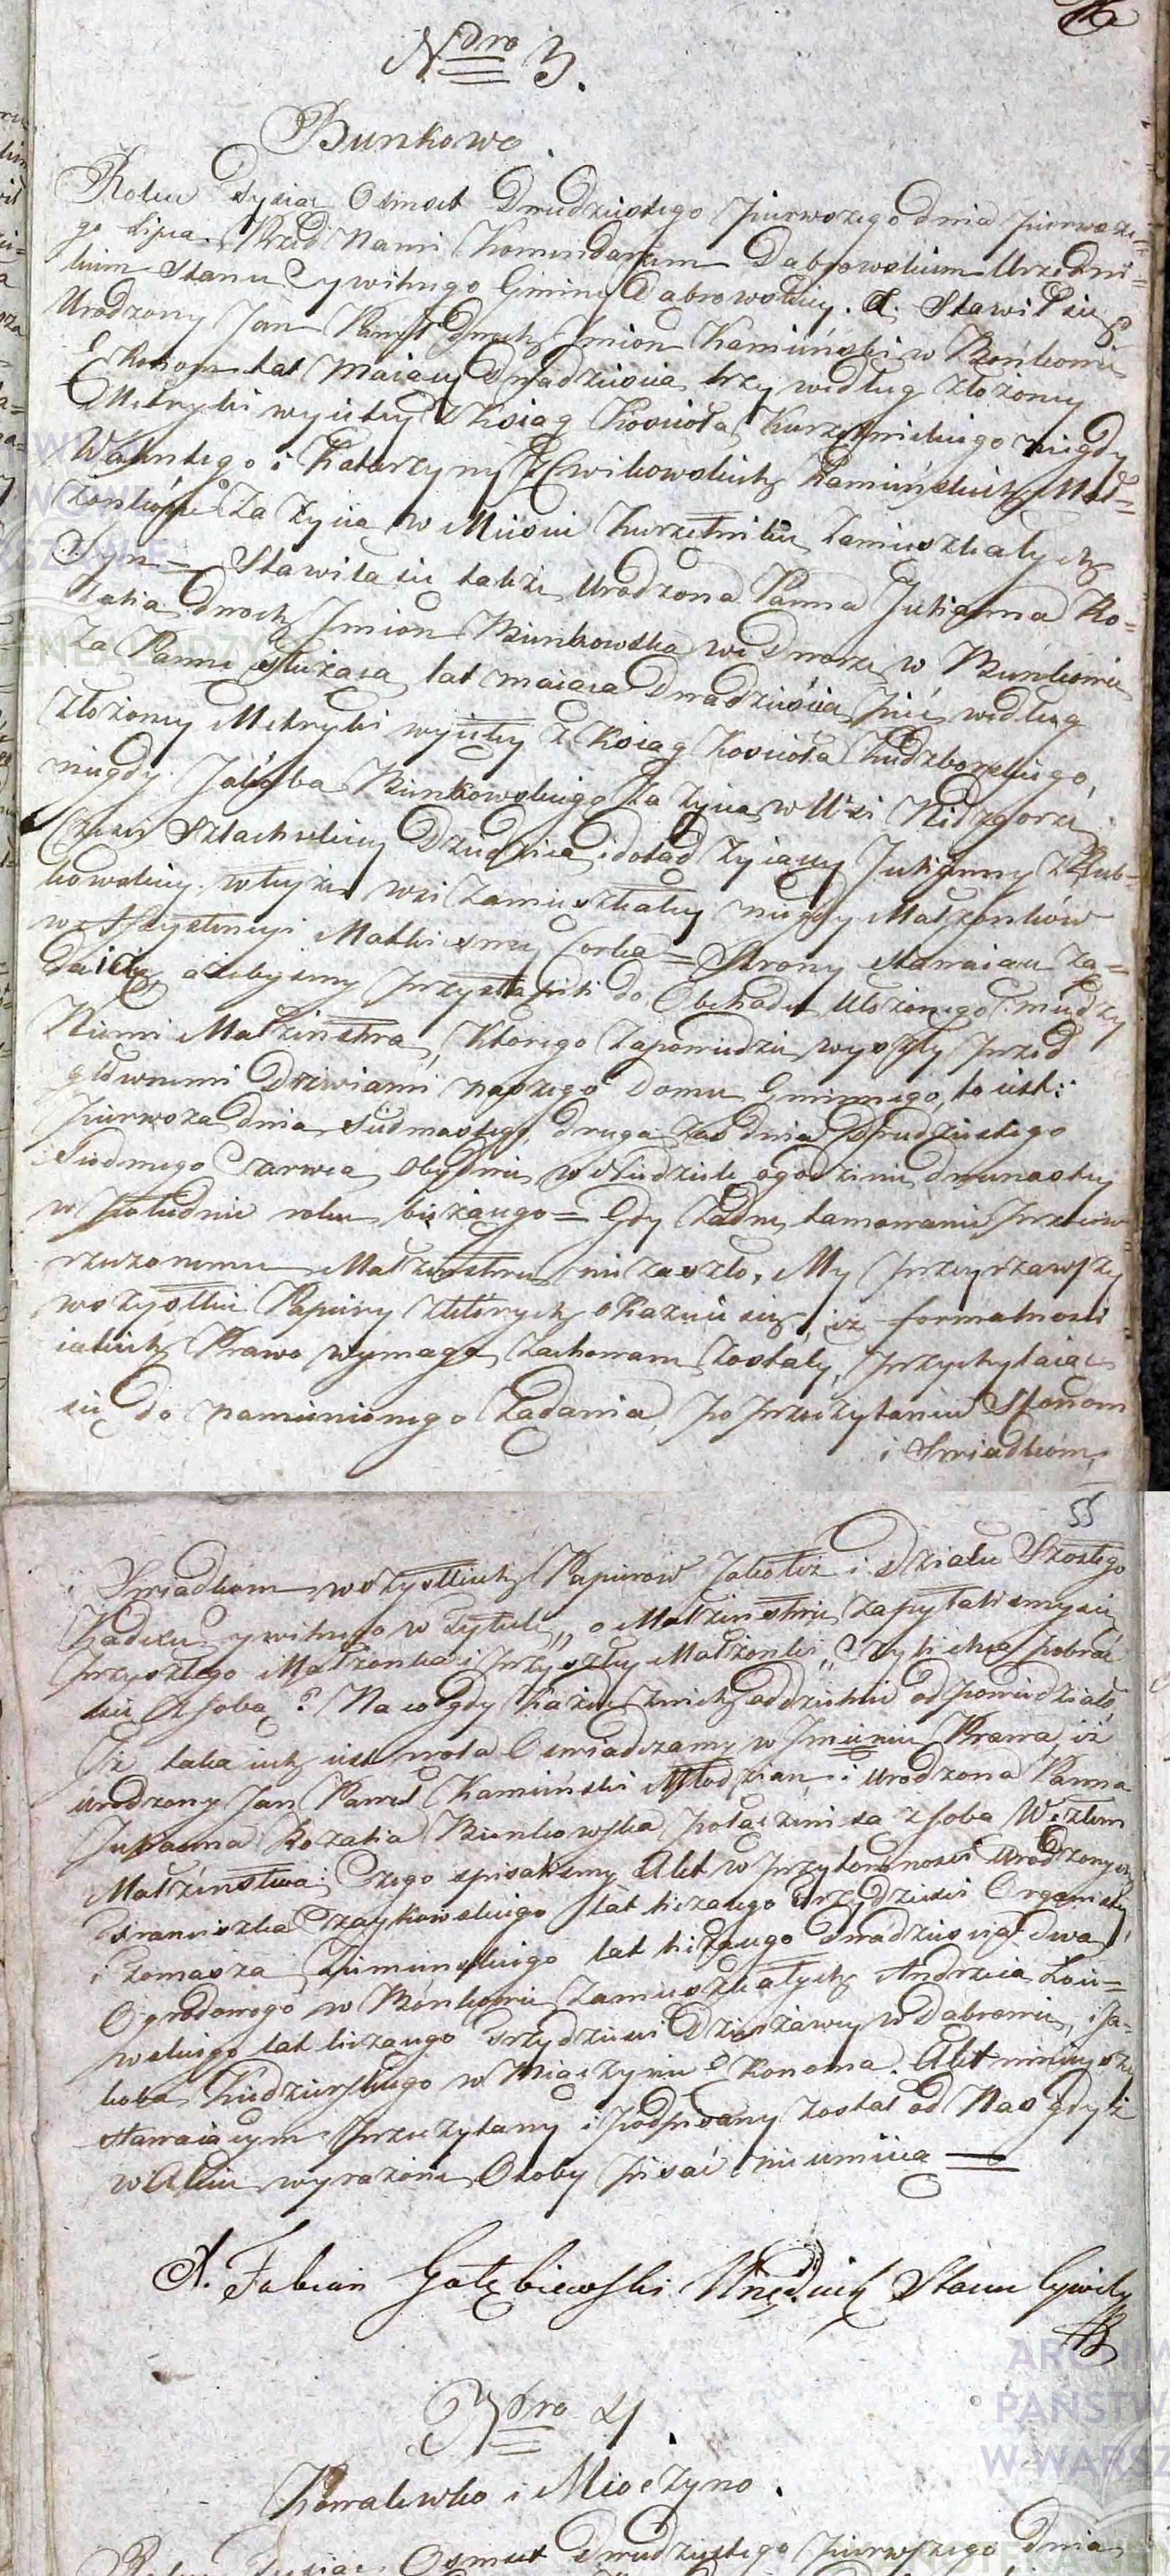 Ndro 3.
Bunkowo.
Roku Tysiąc Osmset Dwudziestego pierwszego dnia pierwsze=
go Lipca. Przed Nami Komendarzem Dąbrowskim Urzędni=
kiem Stanu Cywilnego Gminy Dąbrowskiey. Stawił się
Urodzony Jan Paweł dwóch Imion Kamiński w Bońkowie
Ekonom lat maiący dwadzieścia trzy według złożoney
Metryki wyiętey z Ksiąg Kościoła Kurzętnickiego niegdy
Walentego i Katarzyny z Cwikowskich Kamińskich Mał=
żonków za życia w Mieście Kurzętniku zamieszkałych
Syn = Stawiła się także Urodzona Panna Julianna Ro=
zalia dwoch Imion Bienkowska we dworze w Bońkowie
za Pannę służąca, lat maiąca Dwadzieścia pięć według
złożoney Metryki wyiętey z Ksiąg Kościoła Kudzborskiego,
niegdy Jakóba Bienkowskiego za życia w Wsi Nidzgorze
Części Szlacheckiey Dziedzica, i dotąd żyiącey Julianny z
kowskiey w teyże wsi zamieszkałey niegdy Małżonków
w Assystencyi Matki swey Corka = Strony stawaiące żą=
daią, ażebyśmy przystąpili do Obchodu ułożonego między
Niemi Małżeństwa, którego Zapowiedzie wyszły przed
głownemi Drzwiami naszego Domu Gminnego, to iest:
pierwsza dnia siedmnastego, druga zas dnia Dwudziestego
Siodmego Czerwca, obydwie w Niedziele o godzinie dwunastey
w południe roku bieżącego = Gdy żadne tamowanie przeciw
rzeczonemu Małżeństwu nie zaszło, My przeyrzawszy
wszystkie Papiery z których okazuie się, iż formalności
iakich Prawo wymaga zachowane zostały, przychylaiąc
się do pomienionego żądania, po przeczytaniu Stronom
i Swiadkom,
55
Swiadkom wszystkich Papierow iakoteż i Działu Szóstego
Kodexu Cywilnego w Tytule „ o Małżeństwie, zapytalismy się
przyszłego Małżonka i przyszłey Małżonki „ Czyli chcą pobrać
się z sobą? Na co gdy każde z nich oddzielnie odpowiedziało
Iż taka ich iest wola Oswiadczamy w Imieniu Prawa, iż
urodzony Jan Paweł Kamiński Młodzian i Urodzona Panna
Julianna Rozalia Bienkowska połączeni są z sobą Węzłem
Małżeństwa: Czego spisalismy Akt w przytomności Urodzonych
Franciszka Czaykowskiego lat liczącego trzydzieści Organisty
i Tomasza Ziemińskiego lat liczącego Dwadzieścia dwa
Ogrodowego w Bońkowie zamieszkałych Andrzeia
wskiego lat liczącego trzydzieści Dzierżawcy w Dąbrowie, i Ja=
koba w Miączynie Ekonoma. Akt ninieyszy
stawaiącym przeczytany i podpisany został od Nas gdyż
w Akcie wyrażone Osoby pisać nie umieią
X. Fabian Gołębiewski Urzędnik Stanu Cywilny
Ndro 4.
Kowalewko i Mioczyno.
Roku Tysiąc Osmset Dwudziestego pierwszego Dnia